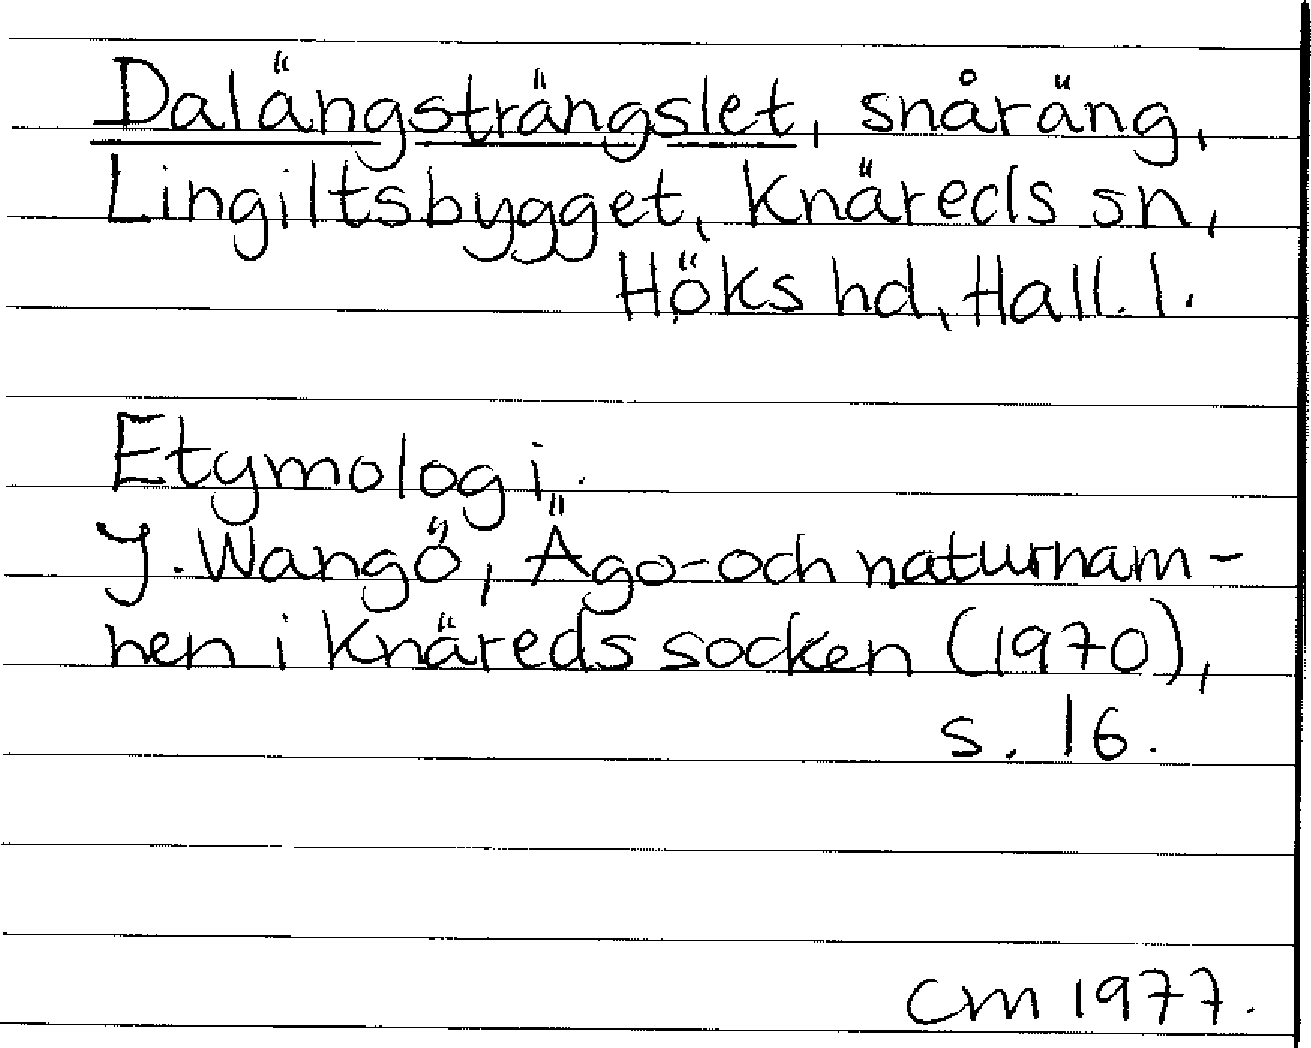 Dalängsträngslet, snåräng,
Lingiltsbygget, Knäreds sn,
Höks hd, Hall. l.
Etymologi.
J. Wangö, Ägo- och naturnam-
nen i Knäreds socken (1970),
s. 16.
CM 1977.